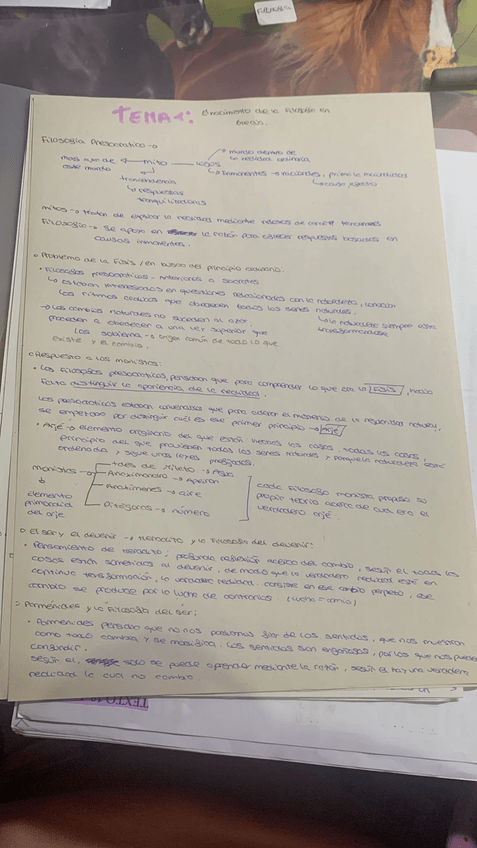 TEMA 1: El nacimiento de la Filosofía en
Grecia.
Filosofía Presocrática
mundo dentro de
la realidad ordinaria
mas que de mito logos
este mundo Inmanentes racionales, prima la racionalidad
transcendencia causa efecto
respuestas
tranquilizadoras
mitos tratan de explicar la realidad mediante relatos de
Filosofía se apoya en la razón para establecer respuestas basadas en
causas inmanentes.
Problema de la fisis / en busca del principio
Filosofos presocraticos - anteriores a Socrates
Estaban interesados en cuestiones relacionadas con la naturaleza, conocian
los ritmos que obedecen todos los seres naturales.
Los cambios naturales no suceden al azar la naturaleza siempre esta
obedecen a una ley superior que transformandose
los gobierna origen común de todo lo que
existe y el cambio.
Respuesta a los monistas:
Los filosofos presocraticos, pensaban que para comprender lo que era la FISIS, hacia
falta distinguir la apariencia de la realidad.
Los presocraticos estaban que para el misterio de la
se empeñado por distinguir cuál es ese primer principio ARJÉ
Arjé elemento originario del que están hechas las cosas, todas las cosas,
principio del que provienen todos los seres naturales y porque la naturaleza está
ordenada y sigue unas leyes prefijadas.
tales de Mileto Agua
monistas Anaximandro Apeiron cada filosofo monista propuso su
Anaxímenes aire propia teoría acerca de cual era el
elemento Pitágoras número verdadero arjé.
primordial
del arjé.
El ser y el devenir Heráclito y la Filosofía del devenir:
Pensamiento de Heráclito, profunda reflexión acerca del cambio, según el todas las
cosas están sometidas al devenir, de modo que la verdadera realidad está en
continua transformación, la verdadera realidad consiste en ese cambio perpetuo, ese
cambio se produce por la lucha de contrarios.
Parménides y la Filosofía del ser:
Parmenides pensaba que no nos podiamos fiar de los sentidos, que nos muestran
como todo cambia y se modifica. Los sentidos son engañosos, por los que nos puede
confundir.
Según el, solo se puede aprender mediante la razón, según el hay una verdadera
realidad la cual no cambia